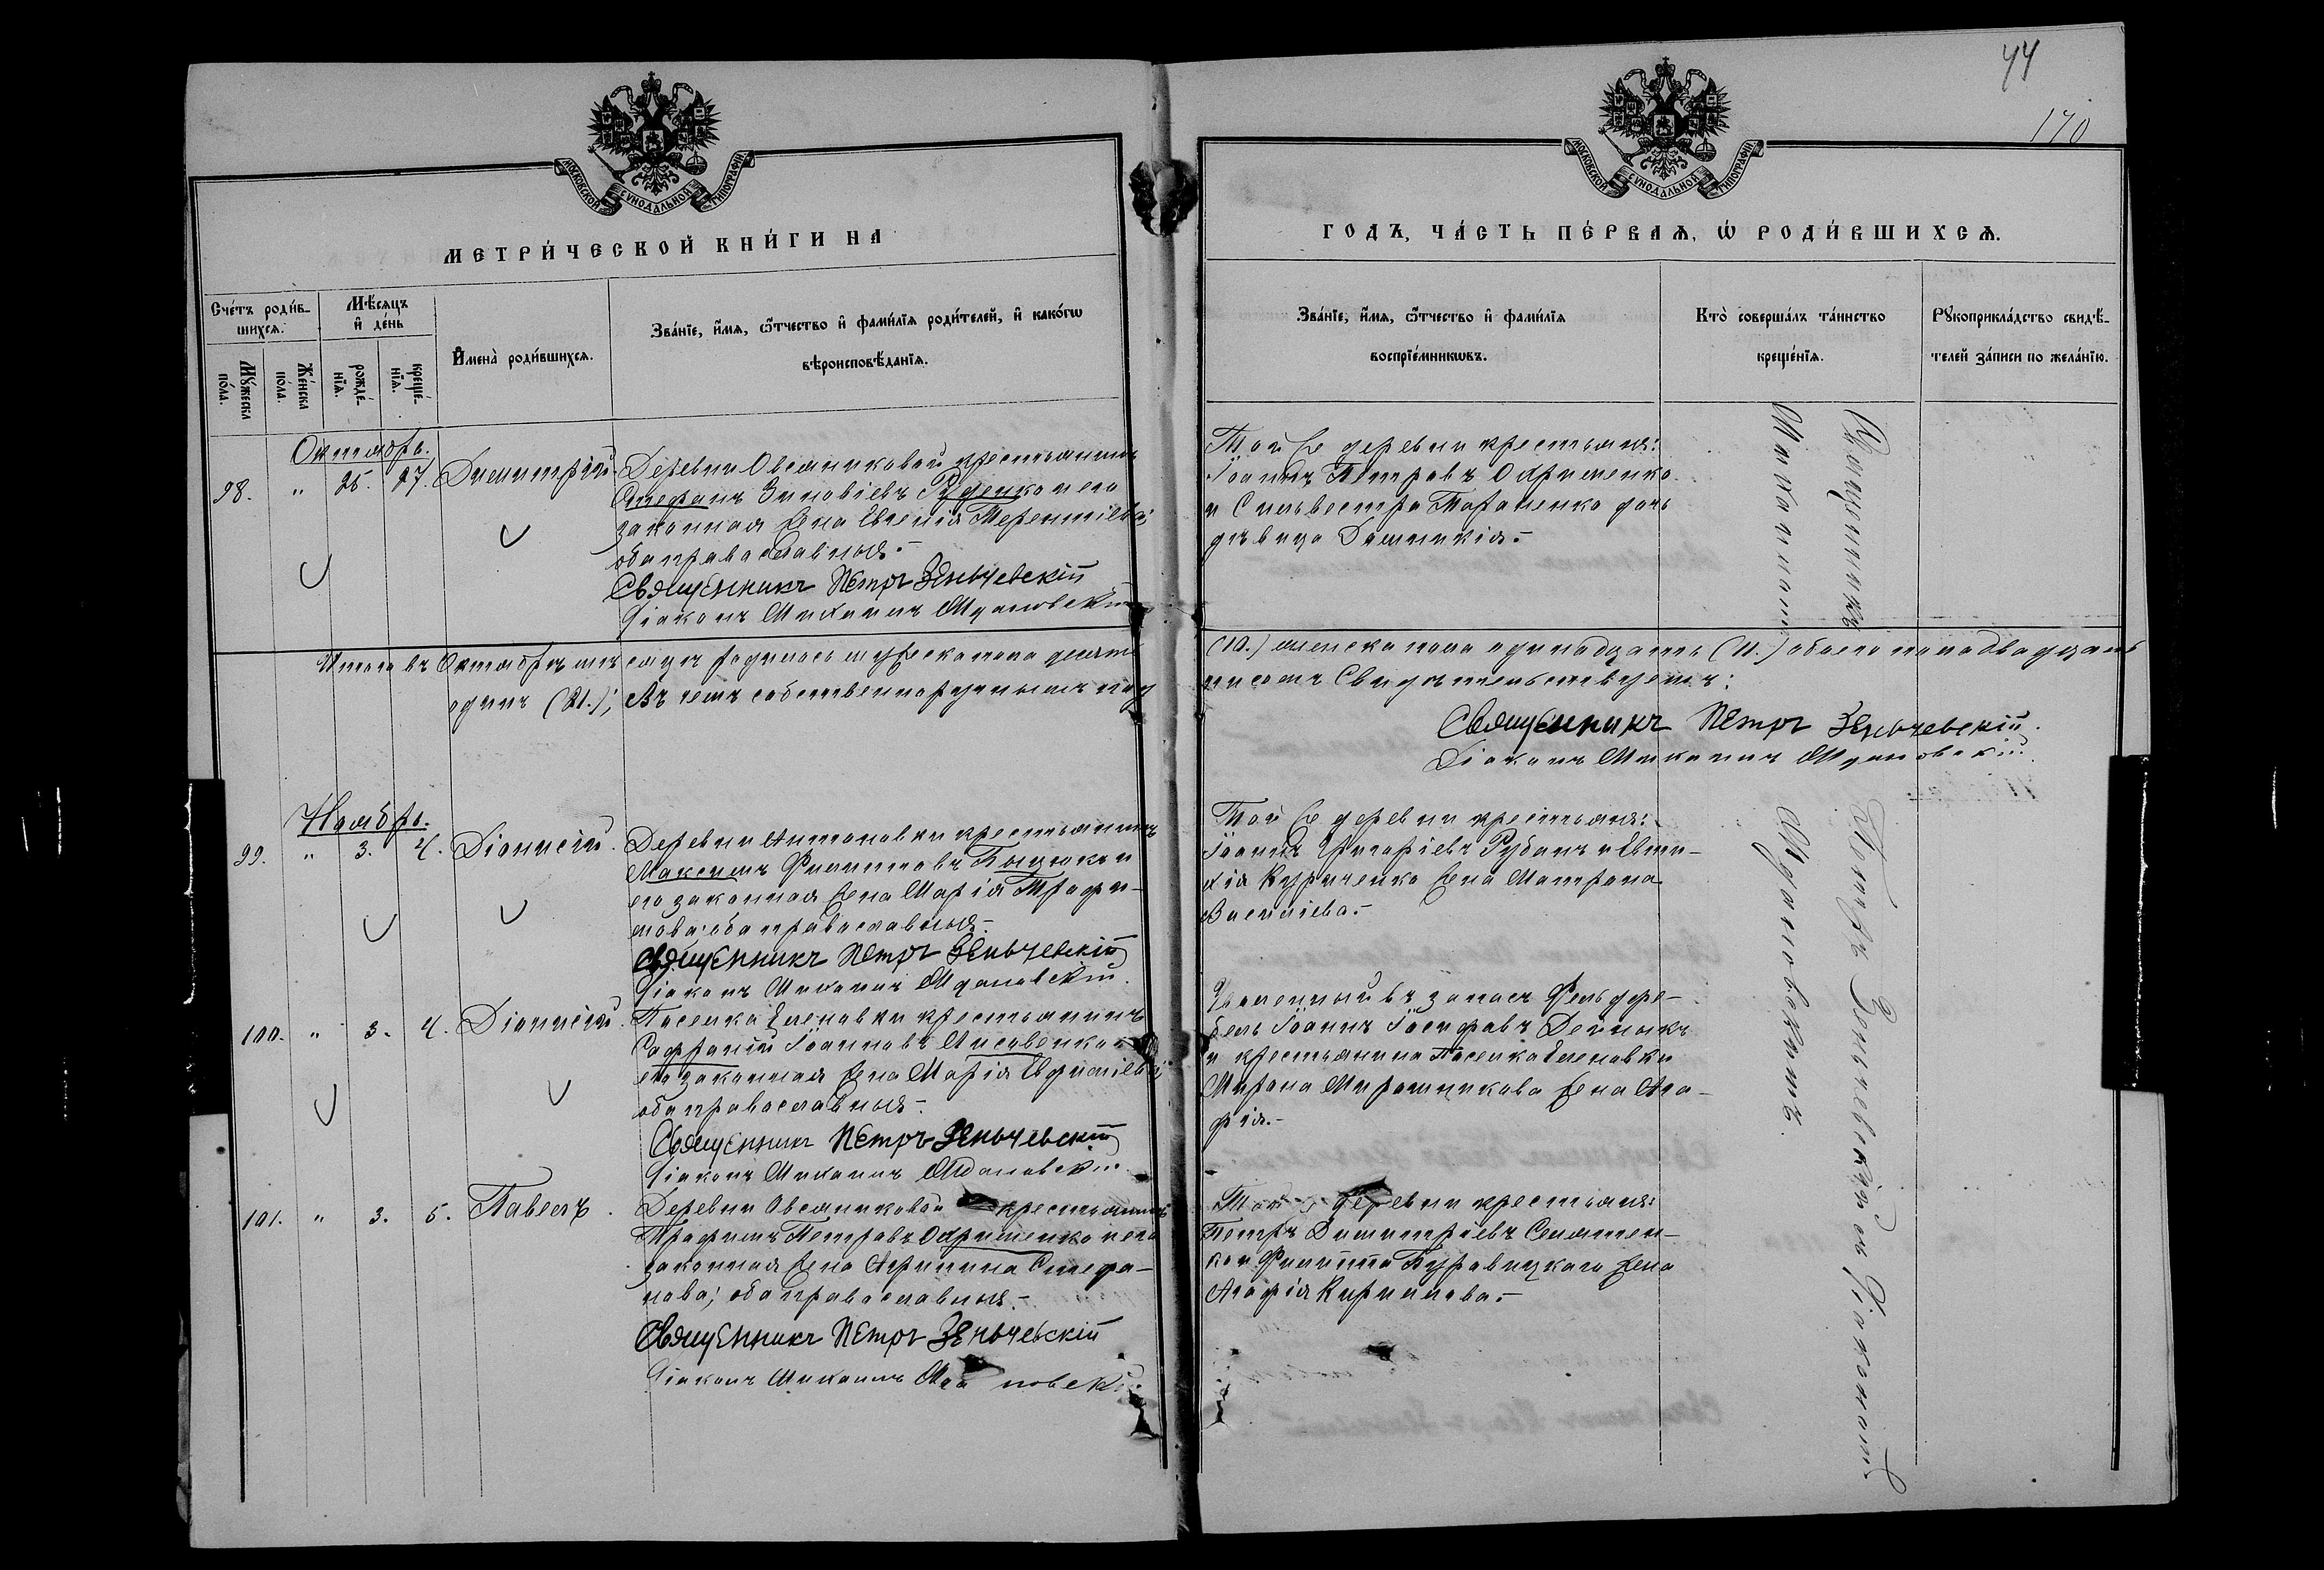 44
170
МОСКОВСКОЙ СѴНОДАЛЬНОЙ ТИПОГРАФІИ
МОСКОВСКОЙ СѴНОДАЛЬНОЙ ТИПОГРАФІИ
МЕТРИ́ЧЕСКОЙ КНИ́ГИ НА
ГОДЪ, ЧА́СТЬ ПЕ́РВАѦ, Ѡ РОДИ́ВШИХСѦ.
Сче́тъ роди́в-
шихсѧ.
Мѣ́сѧцъ
и҆ де́нь
Му́жеска
по́ла.
Же́нска
по́ла.
рожде́-
нїѧ.
креще́-
нїѧ.
И҆мена̀ роди́вшихсѧ.
Зва́нїе, и҆́мѧ, ѻ҆́тчество и҆ фами́лїѧ роди́телей, и҆ како́гѡ
вѣроисповѣ́данїѧ.
Зва́нїе, и҆́мѧ, ѻ҆́тчество и҆ фами́лїѧ
воспрїе́мникѡвъ.
Кто̀ соверша́лъ та́инство
креще́нїѧ.
Рꙋкоприкла́дство свидѣ́-
телей за́писи по жела́нїю.
Октябрь.
98. " 25. 27. Димитрій.
Деревни Овсяниковой крестьянинъ
Стефанъ Зиновіевъ Руденко и его
законная жена Евгенія Терентіева;
оба православные.-
Священникъ Петръ Зеньчевскій
Діаконъ Михаилъ Мдановскій
Той же деревни крестьяне:
Іоаннъ Петровъ Охрименко
и Сильвестра Тараненко дочь
дѣвица Домникія.-
Итого въ Октябрѣ мѣсяцѣ родилось мужеска пола десять (10.) женска пола одинадцать (11.) обоего пола двадцать
одинъ (21.); Въ чемъ собственноручнымъ подписомъ Свидѣтельствуемъ:
Священникъ Петръ Зеньчевскій.
Діаконъ Михаилъ Мдановскій.
Ноябрь.
99. " 3. 4. Діонисій.
Деревни Антоновки крестьянинъ
Максимъ Филипповъ и
его законная жена Марія Трофи-
мова; оба православные.-
Священникъ Петръ Зеньчевскій
Діаконъ Михаилъ Мдановскій.
Той же деревни крестьяне:
Іоаннъ Григоріевъ Рубанъ и Евти-
хія Куриченко жена Матрона
Василіева.-
100. " 3. 4. Діонисій.
Поселка Еленовки крестьянинъ
Софроній Іоанновъ Лисовенко и
его законная жена Марія Евфиміева;
оба православные.-
Священникъ Петръ Зеньчевскій
Діаконъ Михаилъ Мдановскій.
Уволенный въ запасъ Фельдфе-
бель Іоаннъ Іосифовъ Дейныкъ
и крестьянина Поселка Еленовки
Мирона Мирошникова жена Ага-
фія.-
101. " 3. 5. Павелъ.
Деревни Овсяниковой крестьянинъ
Трофимъ Петровъ Охрименко и его
законная жена Агрипина Стефа-
нова; оба православные.-
Священникъ Петръ Зеньчевскій
Діаконъ Михаилъ Мдановскій.
Той же деревни крестьяне:
Петръ Димитріевъ Селямен-
ко и Филиппа Журавицкаго жена
Агафія Кириллова.-
Священникъ Петръ Зеньчевскій съ Діакономъ
Михаиломъ Мдановскимъ.